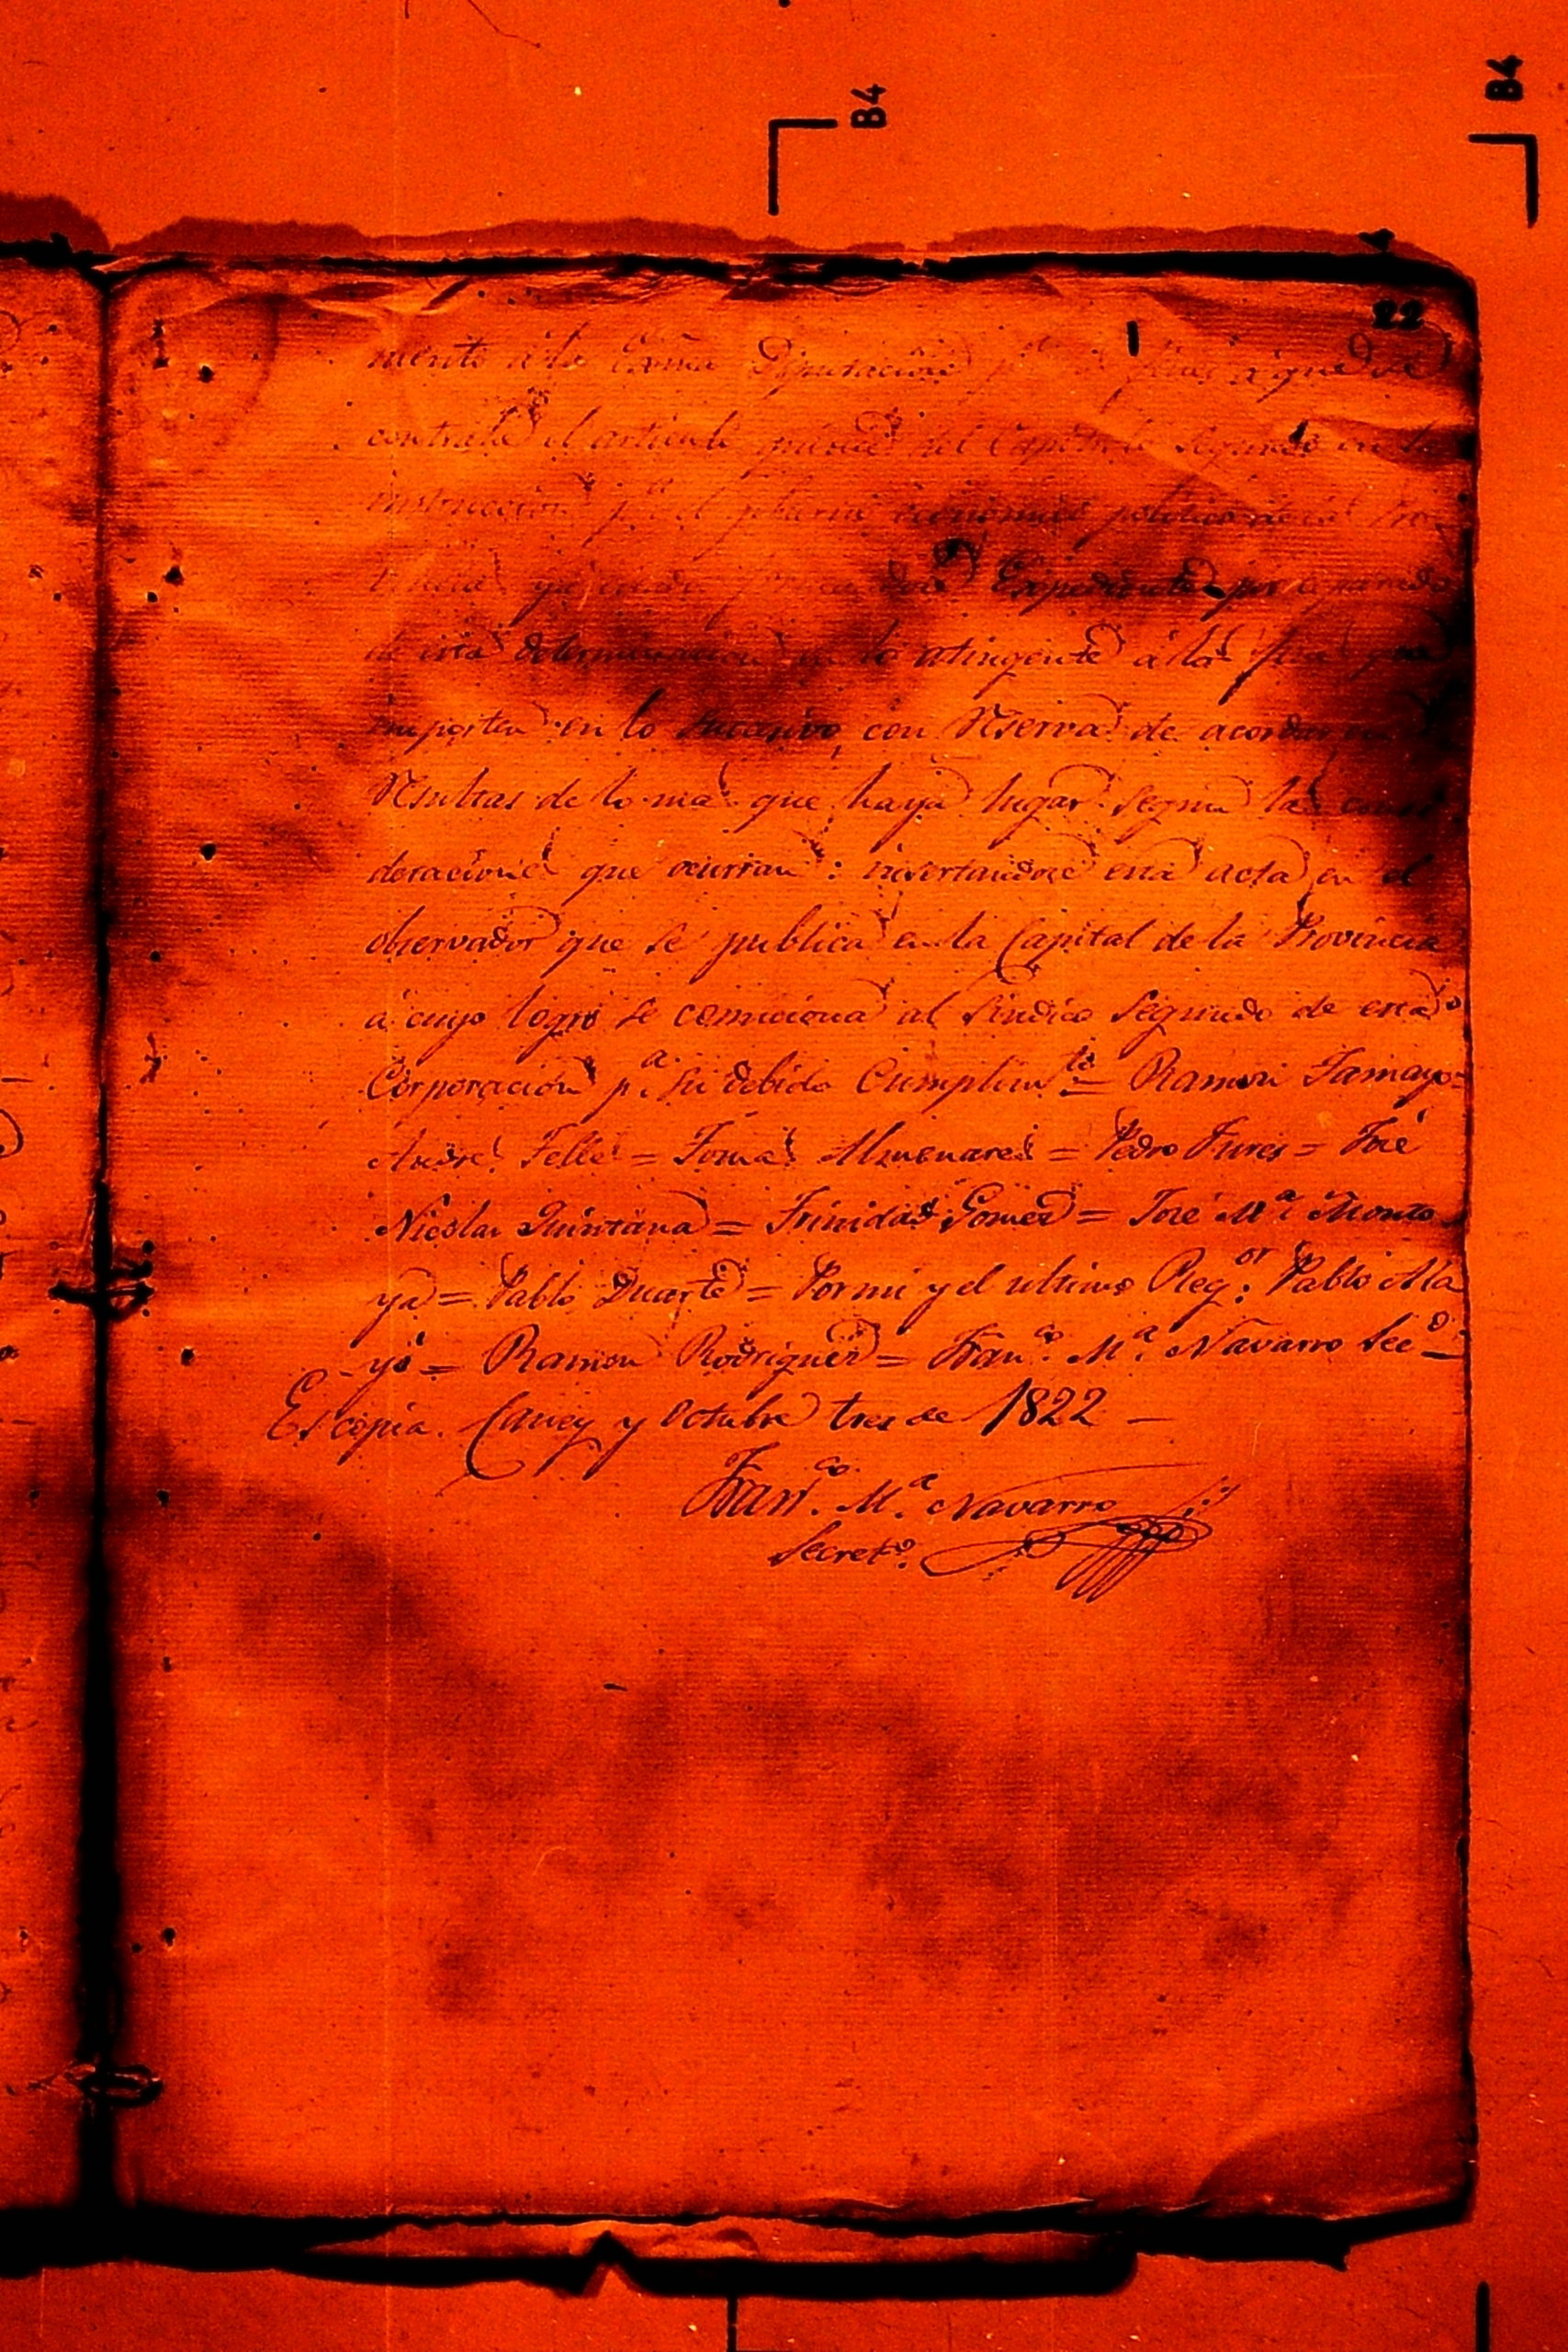 B4
B4
22
miento á la Exma Diputacion fines a que se
contrahe el articulo primero del Capitulo Segundo en la
instruccion p.ª el gobierno economico politico de las Pro-
Expediente por separado
de esta determinacion en lo atingente á las que
importen en lo sucesivo, con reserva de acordar
resultas de lo mas que haya lugar segun las consi
deraciones que ocurran: insertandose esta acta en el
observador que se publica en la Capital de la Provincia
a cuyo logro se comiciona al Sindico Segundo de esta
Corporacion p.ª su debido Cumplim.to = Ramon Tamayo =
Andres Telles = Tomas Almenares = Pedro Fures = José
Nicolas Quintana = Trinidad Gomez = José M.ª Monto
ya = Pablo Duarte = Por mi y el ultimo Reg.or Pablo Ala
yó = Ramon Rodriguez = Fran.co M.ª Navarro Sec.o =
Es copia. Caney y Octubre tres de 1822 —
Fran.co M.ª Navarro
Secret.o